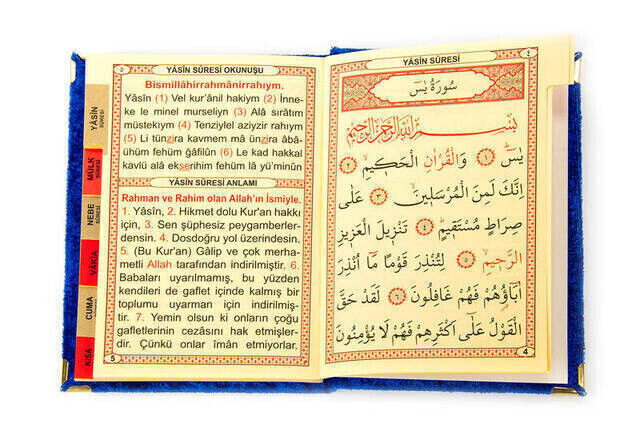 YÂSİN SÛRESİ OKUNUŞU
Bismillâhirrahmânirrahıym.
Yâsîn (1) Vel kur'ânil hakiym (2) İnne-
ke le minel murseliyn (3) Alâ sırâtım
müstekıym (4) Tenziylel aziyzir rahıym
(5) Li tünzira kavmem mâ ünzira âbâ-
ühüm fehüm ğâfilûn (6) Le kad hakkal
kavlü alâ ekserihim fehüm lâ yü'minûn
YÂSÎN SÛRESİ ANLAMI
Rahman ve Rahim olan Allah'ın İsmiyle.
1. Yâsîn, 2. Hikmet dolu Kur'an hakkı
için, 3. Sen şüphesiz peygamberler-
densin. 4. Dosdoğru yol üzerindesin.
5. (Bu Kur'an) Gâlip ve çok merha-
metli Allah tarafından indirilmiştir. 6.
Babaları uyarılmamış, bu yüzden
kendileri de gaflet içinde kalmış bir
toplumu uyarman için indirilmiş-
tir. 7. Yemin olsun ki onların çoğu
gafletlerinin cezasını hak etmişler-
dir. Çünkü onlar îmân etmiyorlar.
5
YÂSİN SÛRESİ
MÜLK
NEBE
SÛRESİ
VÂKIA
CUMA
KISA
YÂSİN SÛRESİ
٤
سُورَةُ يٰسۤ
بِسْمِ اللّٰهِ الرَّحْمٰنِ الرَّحِيمِ
يٰسۤ ﴿١﴾ وَالْقُرْاٰنِ الْحَكِيمِ ﴿٢﴾
اِنَّكَ لَمِنَ الْمُرْسَلِينَ ﴿٣﴾ عَلٰى
صِرَاطٍ مُسْتَقِيمٍ ﴿٤﴾ تَنْزِيلَ الْعَزِيزِ
الرَّحِيمِ ﴿٥﴾ لِتُنْذِرَ قَوْمًا مَٓا اُنْذِرَ
اٰبَٓاؤُ۬هُمْ فَهُمْ غَافِلُونَ ﴿٦﴾ لَقَدْ حَقَّ
الْقَوْلُ عَلٰٓى اَكْثَرِهِمْ فَهُمْ لَا يُؤْمِنُونَ
4